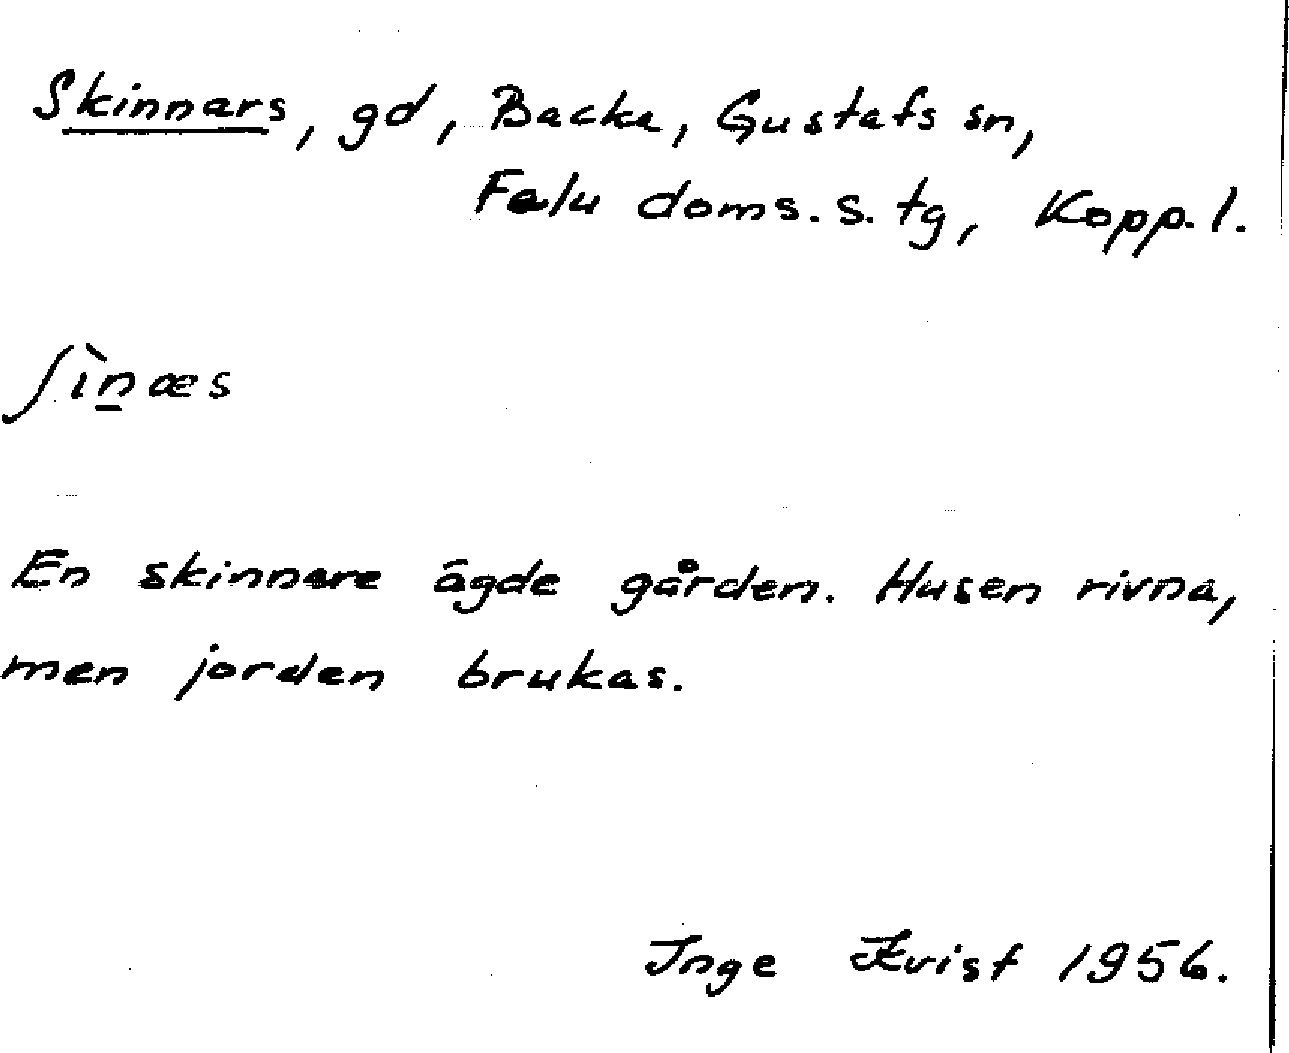 Skinnars, gd, Backa, Gustafs sn,
Falu doms. s. tg, Kopp. l.
ʃìn̲æs
En skinnare ägde gården. Husen rivna,
men jorden brukas.
Inge Kvist 1956.